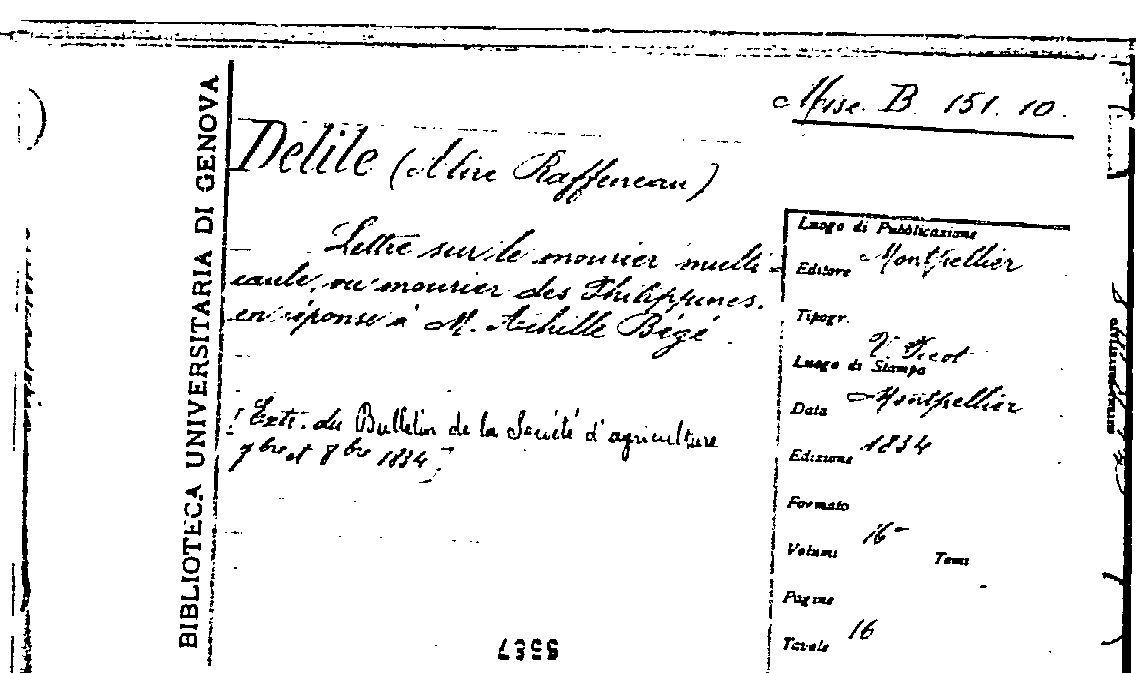 Misc. B. 151. 10.
BIBLIOTECA UNIVERSITARIA DI GENOVA
Delile (Alire Raffeneau)
Lettre sur le mourier multi-
caule, ou mourier des Philippines.
en réponse à M. Achille Bégé
[Extr. du Bulletin de la Société d'agriculture
7bre et 8bre 1834]
Luogo di Pubblicazione
Editore Montpellier
Tipogr.
Luogo di Stampa
Data Montpellier
Edizione 1834
Formato
Volumi 16- Tomi
Pagine
Tavole 16